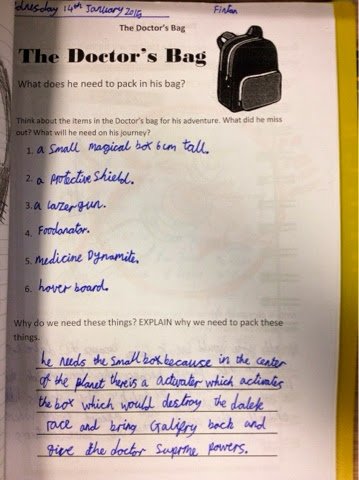 dnesday 14th January 2016 Finton
The Doctor's Bag
The Doctor's Bag
What does he need to pack in his bag?
Think about the items in the Doctor's bag for his adventure. What did he miss
out? What will he need on his journey?
1. a small magical box 6cm tall.
2. a protective shield.
3. a lazer gun.
4. Foodanator.
5. medicine Dynamite.
6. hover board.
Why do we need these things? EXPLAIN why we need to pack these
things.
he needs the small box because in the center
of the planet there is a activater which activates
the box which would destroy the dalek
race and bring Galifry back and
give the doctor Suprme powers.